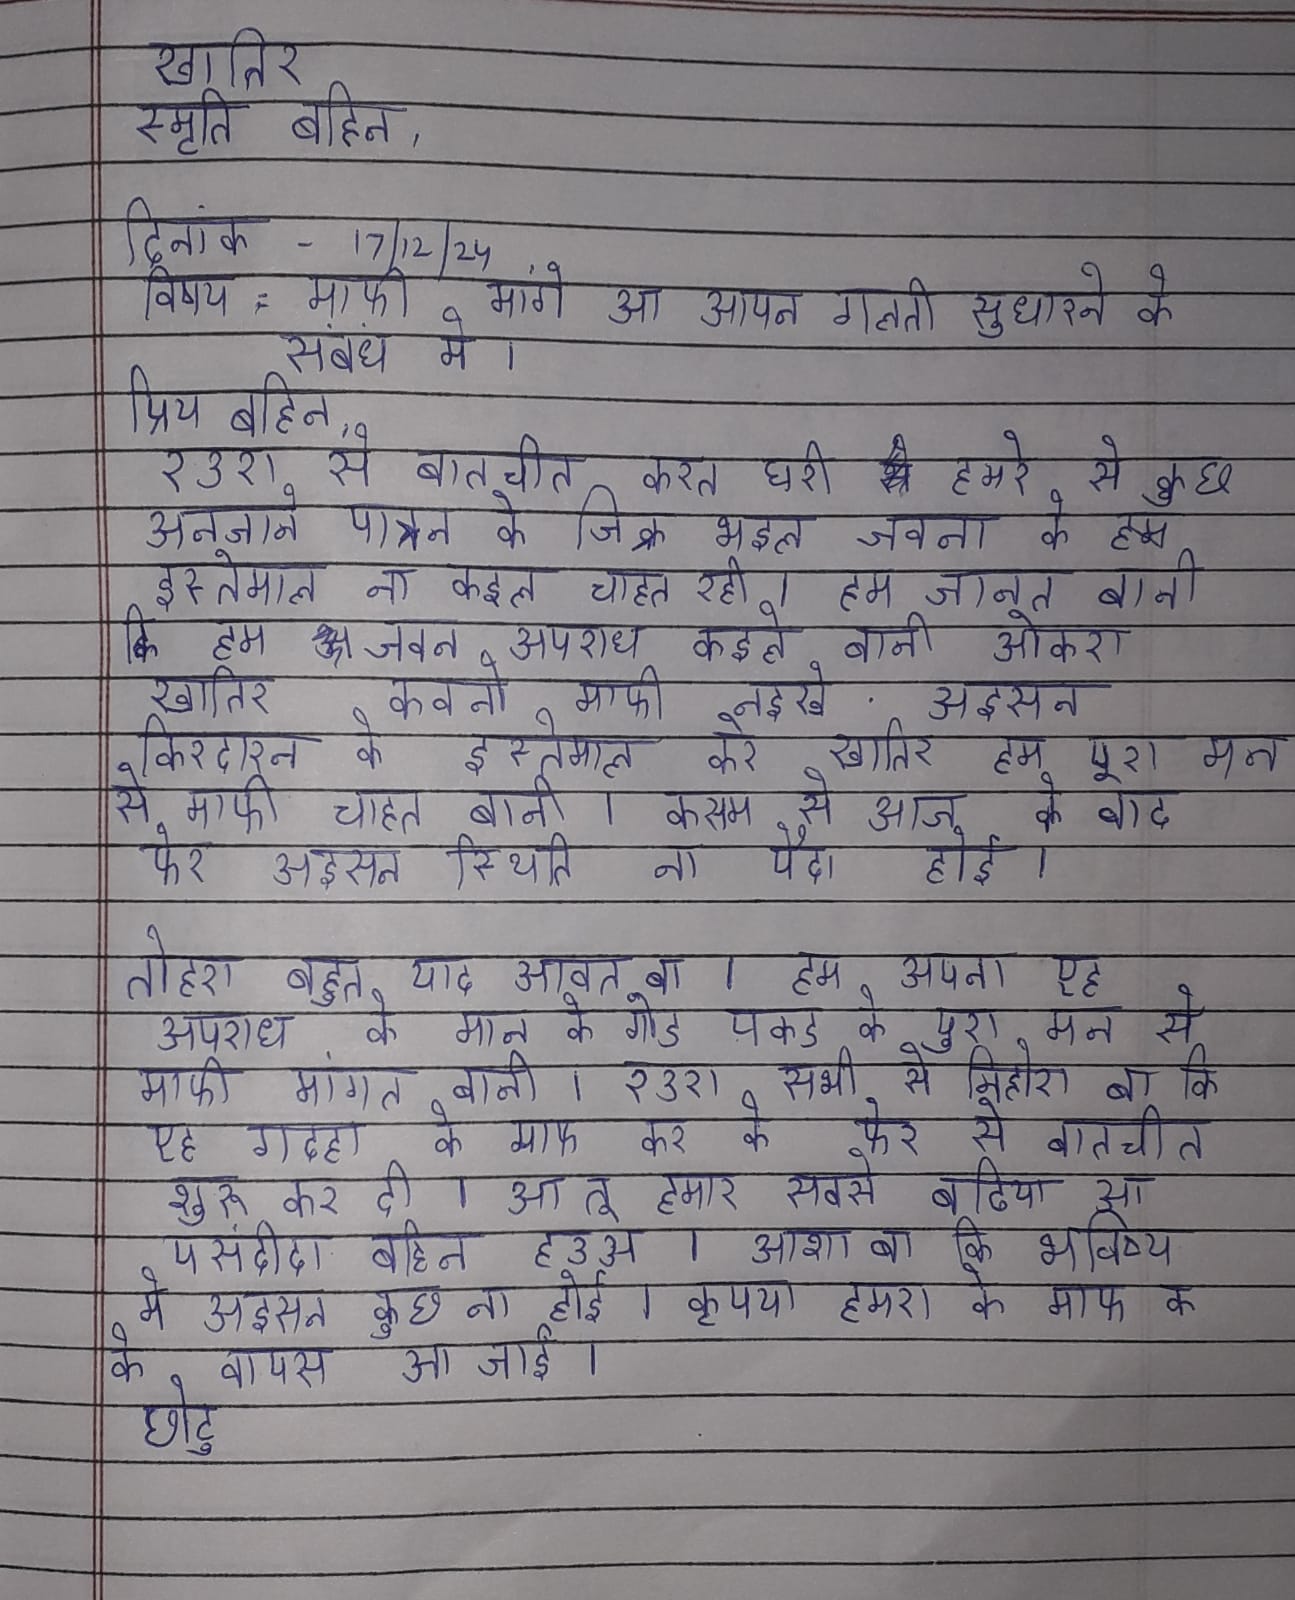 खातिर
स्मृति बहिन,
दिनांक - 17/12/24
विषय = माफी मांगे आ आपन गलती सुधारने के
संबंध मे ।
प्रिय बहिन,
रउरा से बातचीत करत घरी हमरे से कुछ
अनजाने पात्रन के जिक्र भइल जवना के हम
इस्तेमाल ना कइल चाहत रही । हम जानत बानी
कि हम जवन अपराध कइले बानी ओकरा
खातिर कवनो माफी नइखे . अइसन
किरदारन के इस्तेमाल करे खातिर हम पूरा मन
से माफी चाहत बानी । कसम से आज के बाद
फेर अइसन स्थिति ना पैदा होई ।
तोहरा बहुत याद आवत बा । हम अपना एह
अपराध के मान के गोड पकड के पुरा मन से
माफी मांगत बानी । रउरा सभी से निहोरा बा कि
एह गदहा के माफ कर के फेर से बातचीत
शुरू कर दी । आ तू हमार सबसे बढिया आ
पसंदीदा बहिन हउअ । आशा बा कि भविष्य
मे अइसन कुछ ना होई । कृपया हमरा के माफ क
के वापस आ जाई ।
छोटु